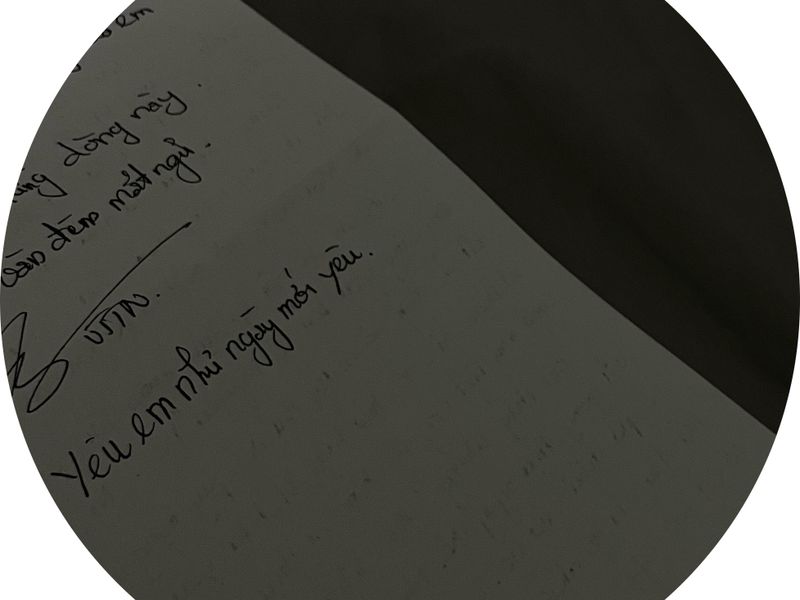 em
dòng này.
đêm mất ngủ.
Yêu em như ngày mới yêu.